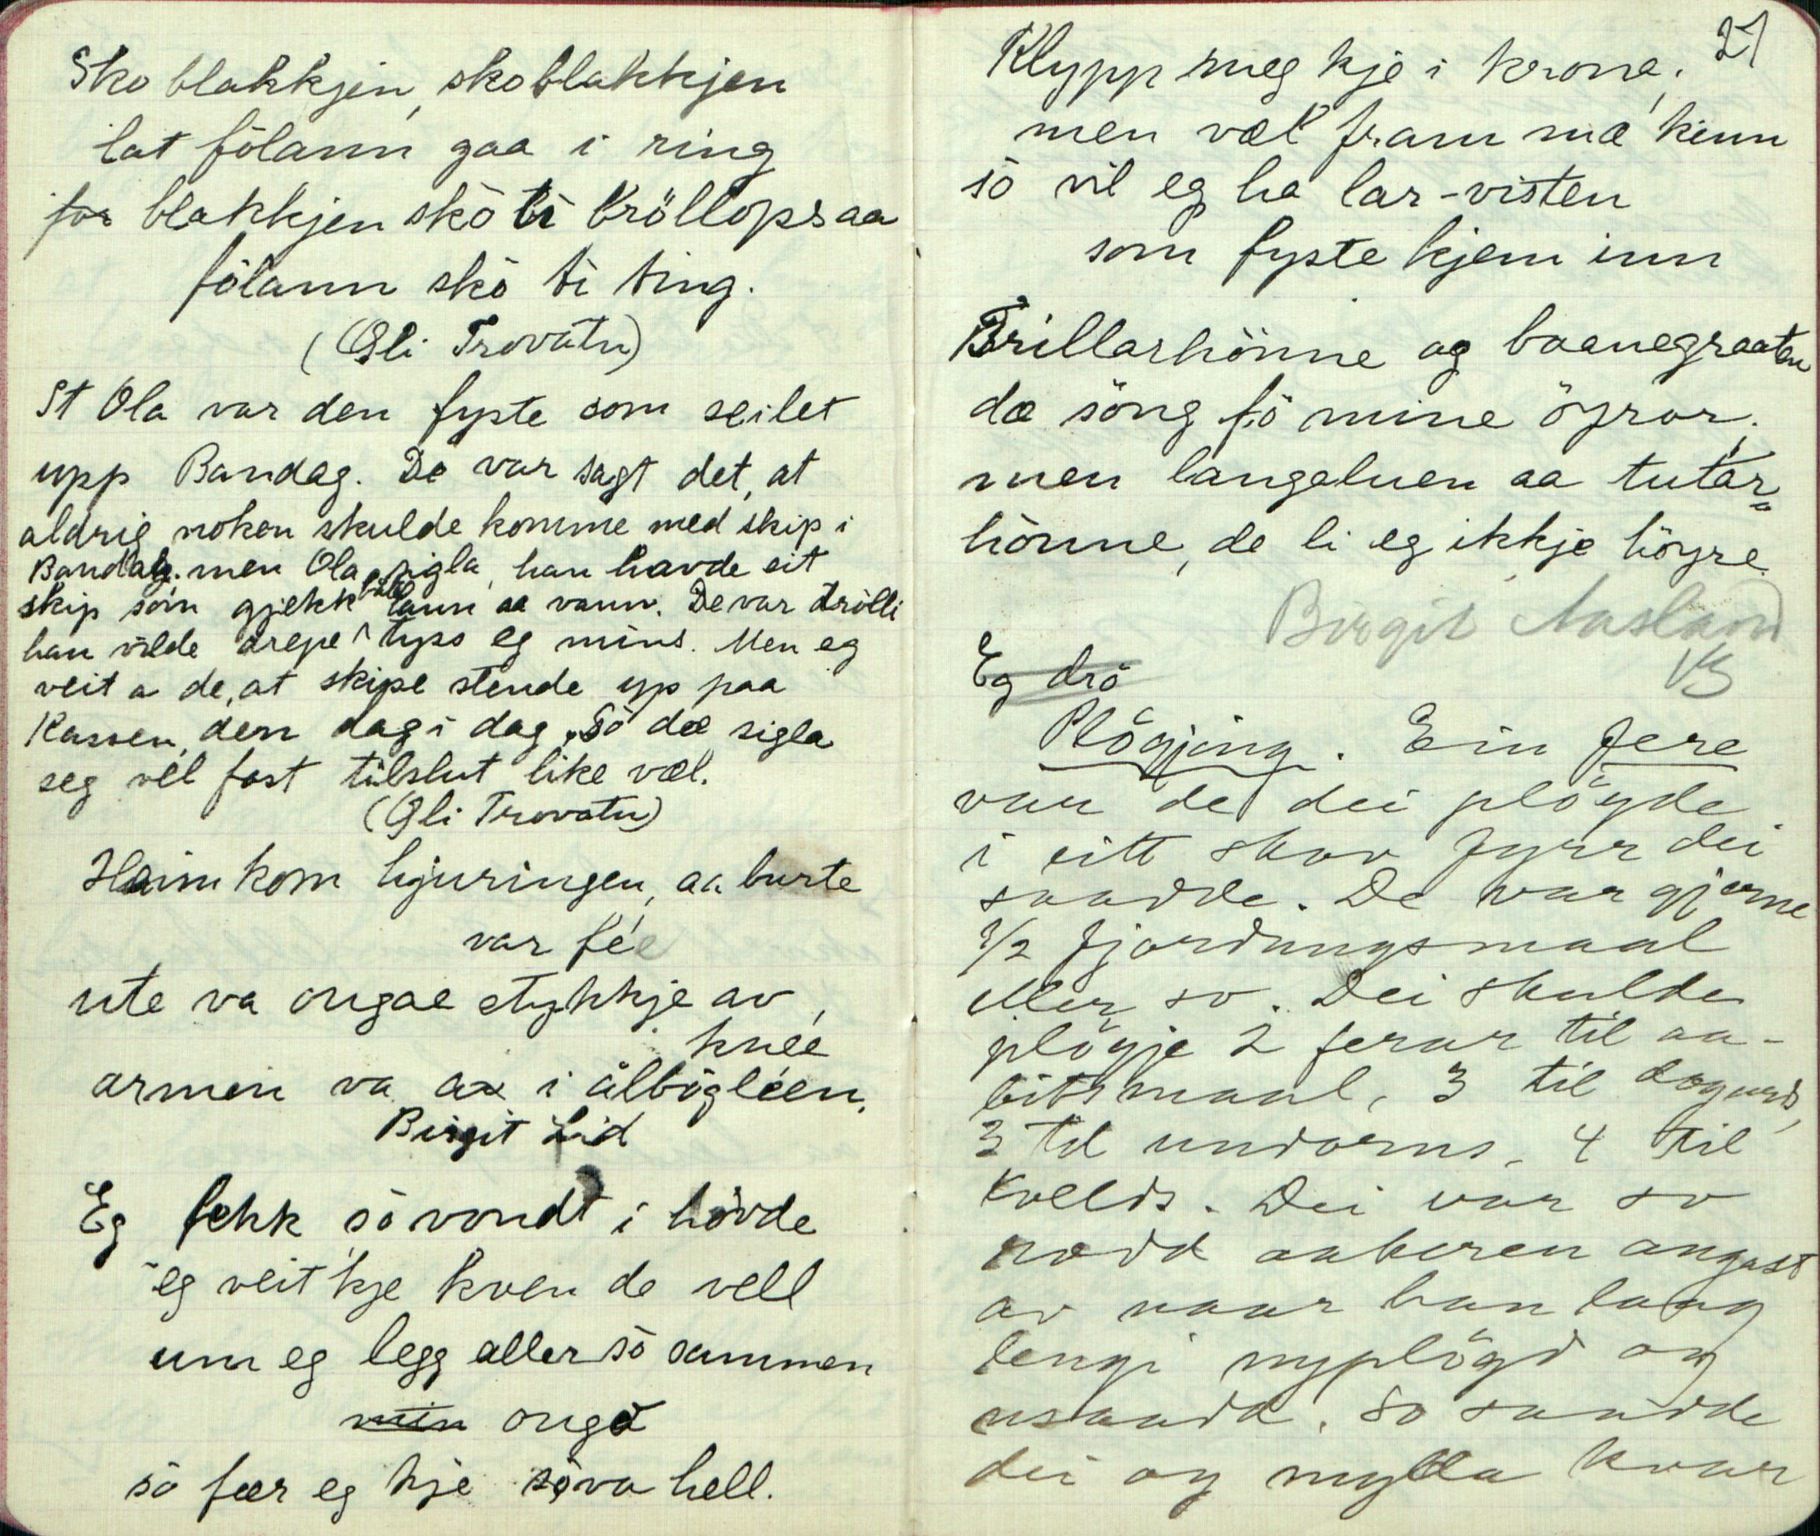 Sko blakkjen, sko blakkjen
lat fölann gaa i ring
for blakkjen skò ti bröllops aa
fölann skò ti ting.
(Gli Trovatn)
St Ola var den fyste som seilet
upp Bandag. De var sagt det, at
aldrig noken skulde komme med skip i
Bandag. men Ola sigla, han havde eit
skip som gjekk lann aa vann. De var trölli
han vilde drepe tyss eg mins. Men eg
veit a de, at skipe stende up paa
den dag i dag. Sò dæ sigla
seg vel fast tilslut like væl.
(Gli Trovatn)
Heim kom hjuringen, aa burte
var fée
ute va ongae stykkje av
knée
armen va ax i ålbògléen.
Birgit Lid
Eg fekk sò vondt i hòvde
eg veit kje kven de vell
um eg legg aller sò sammen
min ongò
sò fær eg kje sòva hell.
27
Klypp meg kje i krone,
men væl fram mæ kinn
sò vil eg ha lar-visten
som fyste kjem inn
Trillarhònne og baanegraaten
dæ söng fò mine öyror,
men langeluen aa tutar-
hònne, de li eg ikkje höyre
Birgit Aasland
VS
Eg drò
Plögjing. Ein fere
var de dei plögde
i eitt skov fyrr dei
saadde. De var gjerne
1/2 fjordungsmaal
eller so. Dei skulde
plögje 2 ferar til aa-
bitsmaal, 3 til dogurs,
3 til undorns, 4 til
kvelds. Dei var so
rædd aakeren angast
av naar han laag
lengi nyplögd og
usaadd. So saadde
dei og mylda kvar